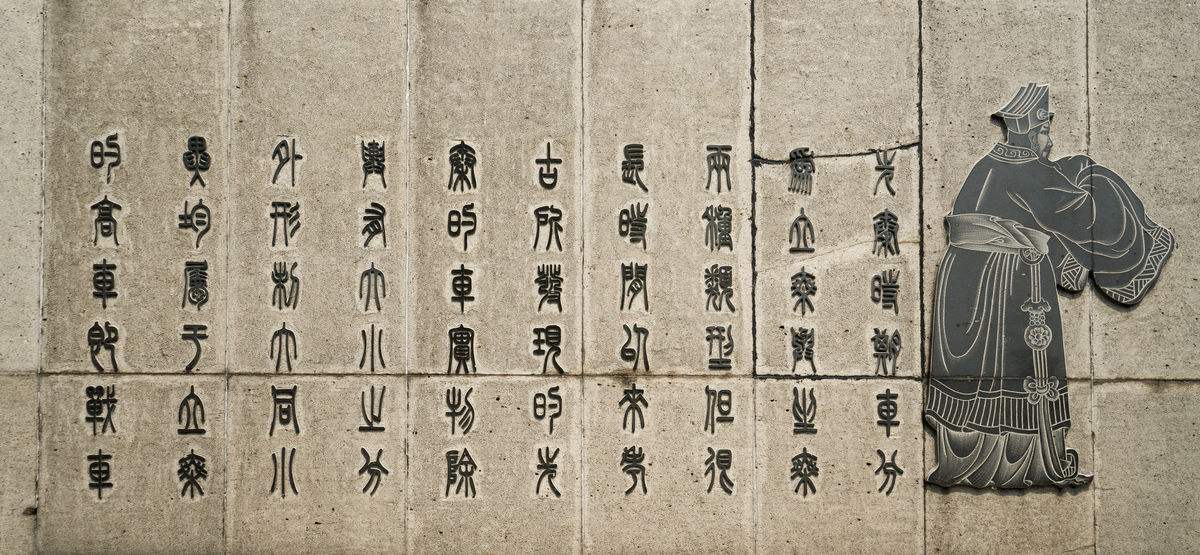 先秦時期車分
為立乘與坐乘
兩種類型但很
長時間以來考
古所發現的先
秦的車實物除
輿有大小之分
外形制大同小
異均屬于立乘
的高車即戰車